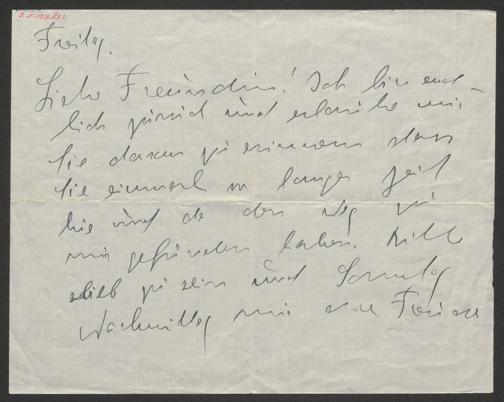 Freitag.
Liebe Freundin! Ich bin end-
lich zurück und erlaube mir
Sie daran zu erinnern dass
Sie einmal vor langer Zeit
hie und da den Weg zu
mir gefunden haben. Bitte
lieb zu sein und Sonntag
Nachmittag mir eine Freude